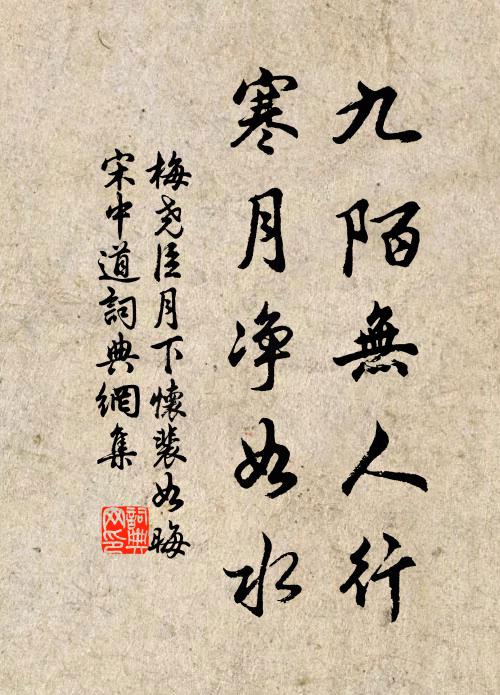 九陌無人行
寒月净如水
梅堯臣月下懷裴如晦
宋中道詞典網集
詞典網印